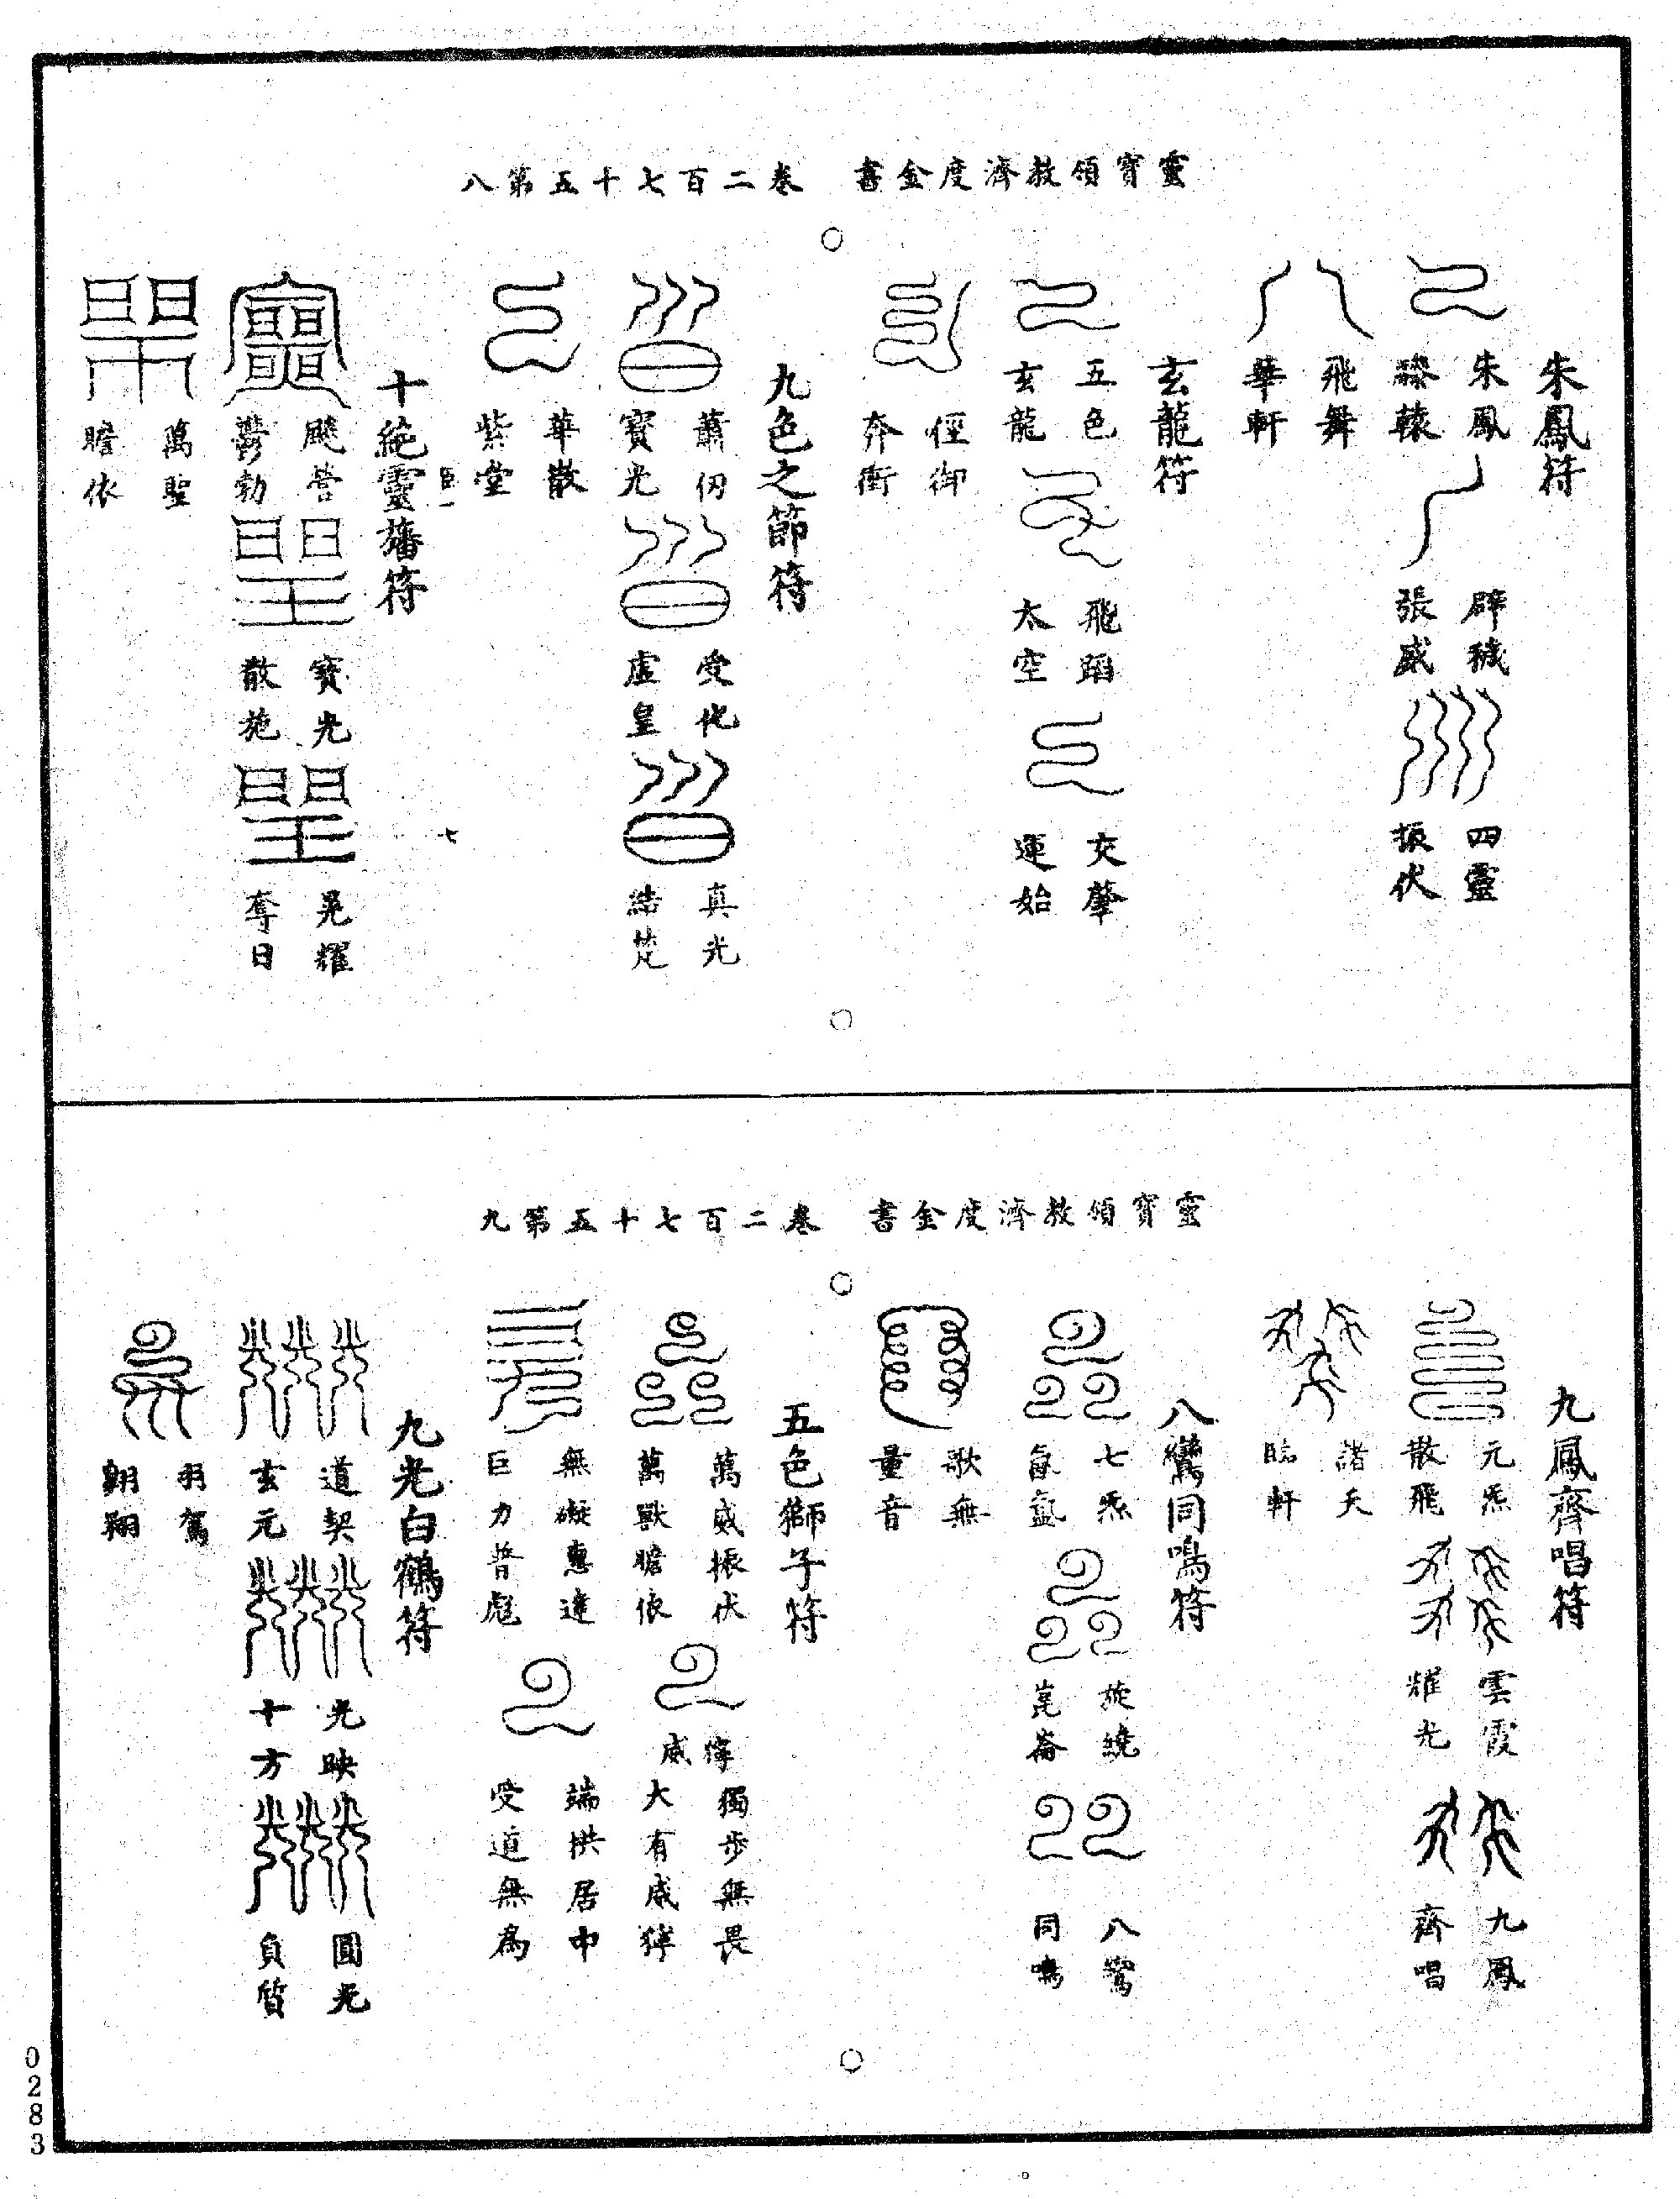 靈寶領教濟度金書　卷二百七十五第八
朱鳳符
朱鳳
騄轅
辟穢
張威
四靈
振伏
飛舞
華軒
玄龍符
五色
玄龍
飛蹈
太空
交肇
運始
徑御
奔衝
九色之節符
蕭仞
寶光
受化
虛皇
真光
結梵
華散
紫堂
七
十絕靈旛符
飈
鬱勃
寶光
散施
晃耀
奪日
萬聖
瞻依
靈寶領教濟度金書　卷二百七十五第九
九鳳齊唱符
元炁
散飛
雲霞
耀光
九鳳
齊唱
諸天
臨軒
八鸞同鳴符
七炁
氤氳
旋繞
崑崙
八鸞
同鳴
歌無
量音
五色獅子符
萬威振伏
萬獸瞻依
獰
威
獨步無畏
大有威獰
無礙惠達
巨力普彪
端拱居中
受道無為
九光白鶴符
道契
玄元
光映
十方
圓光
負質
羽駕
翱翔
0283